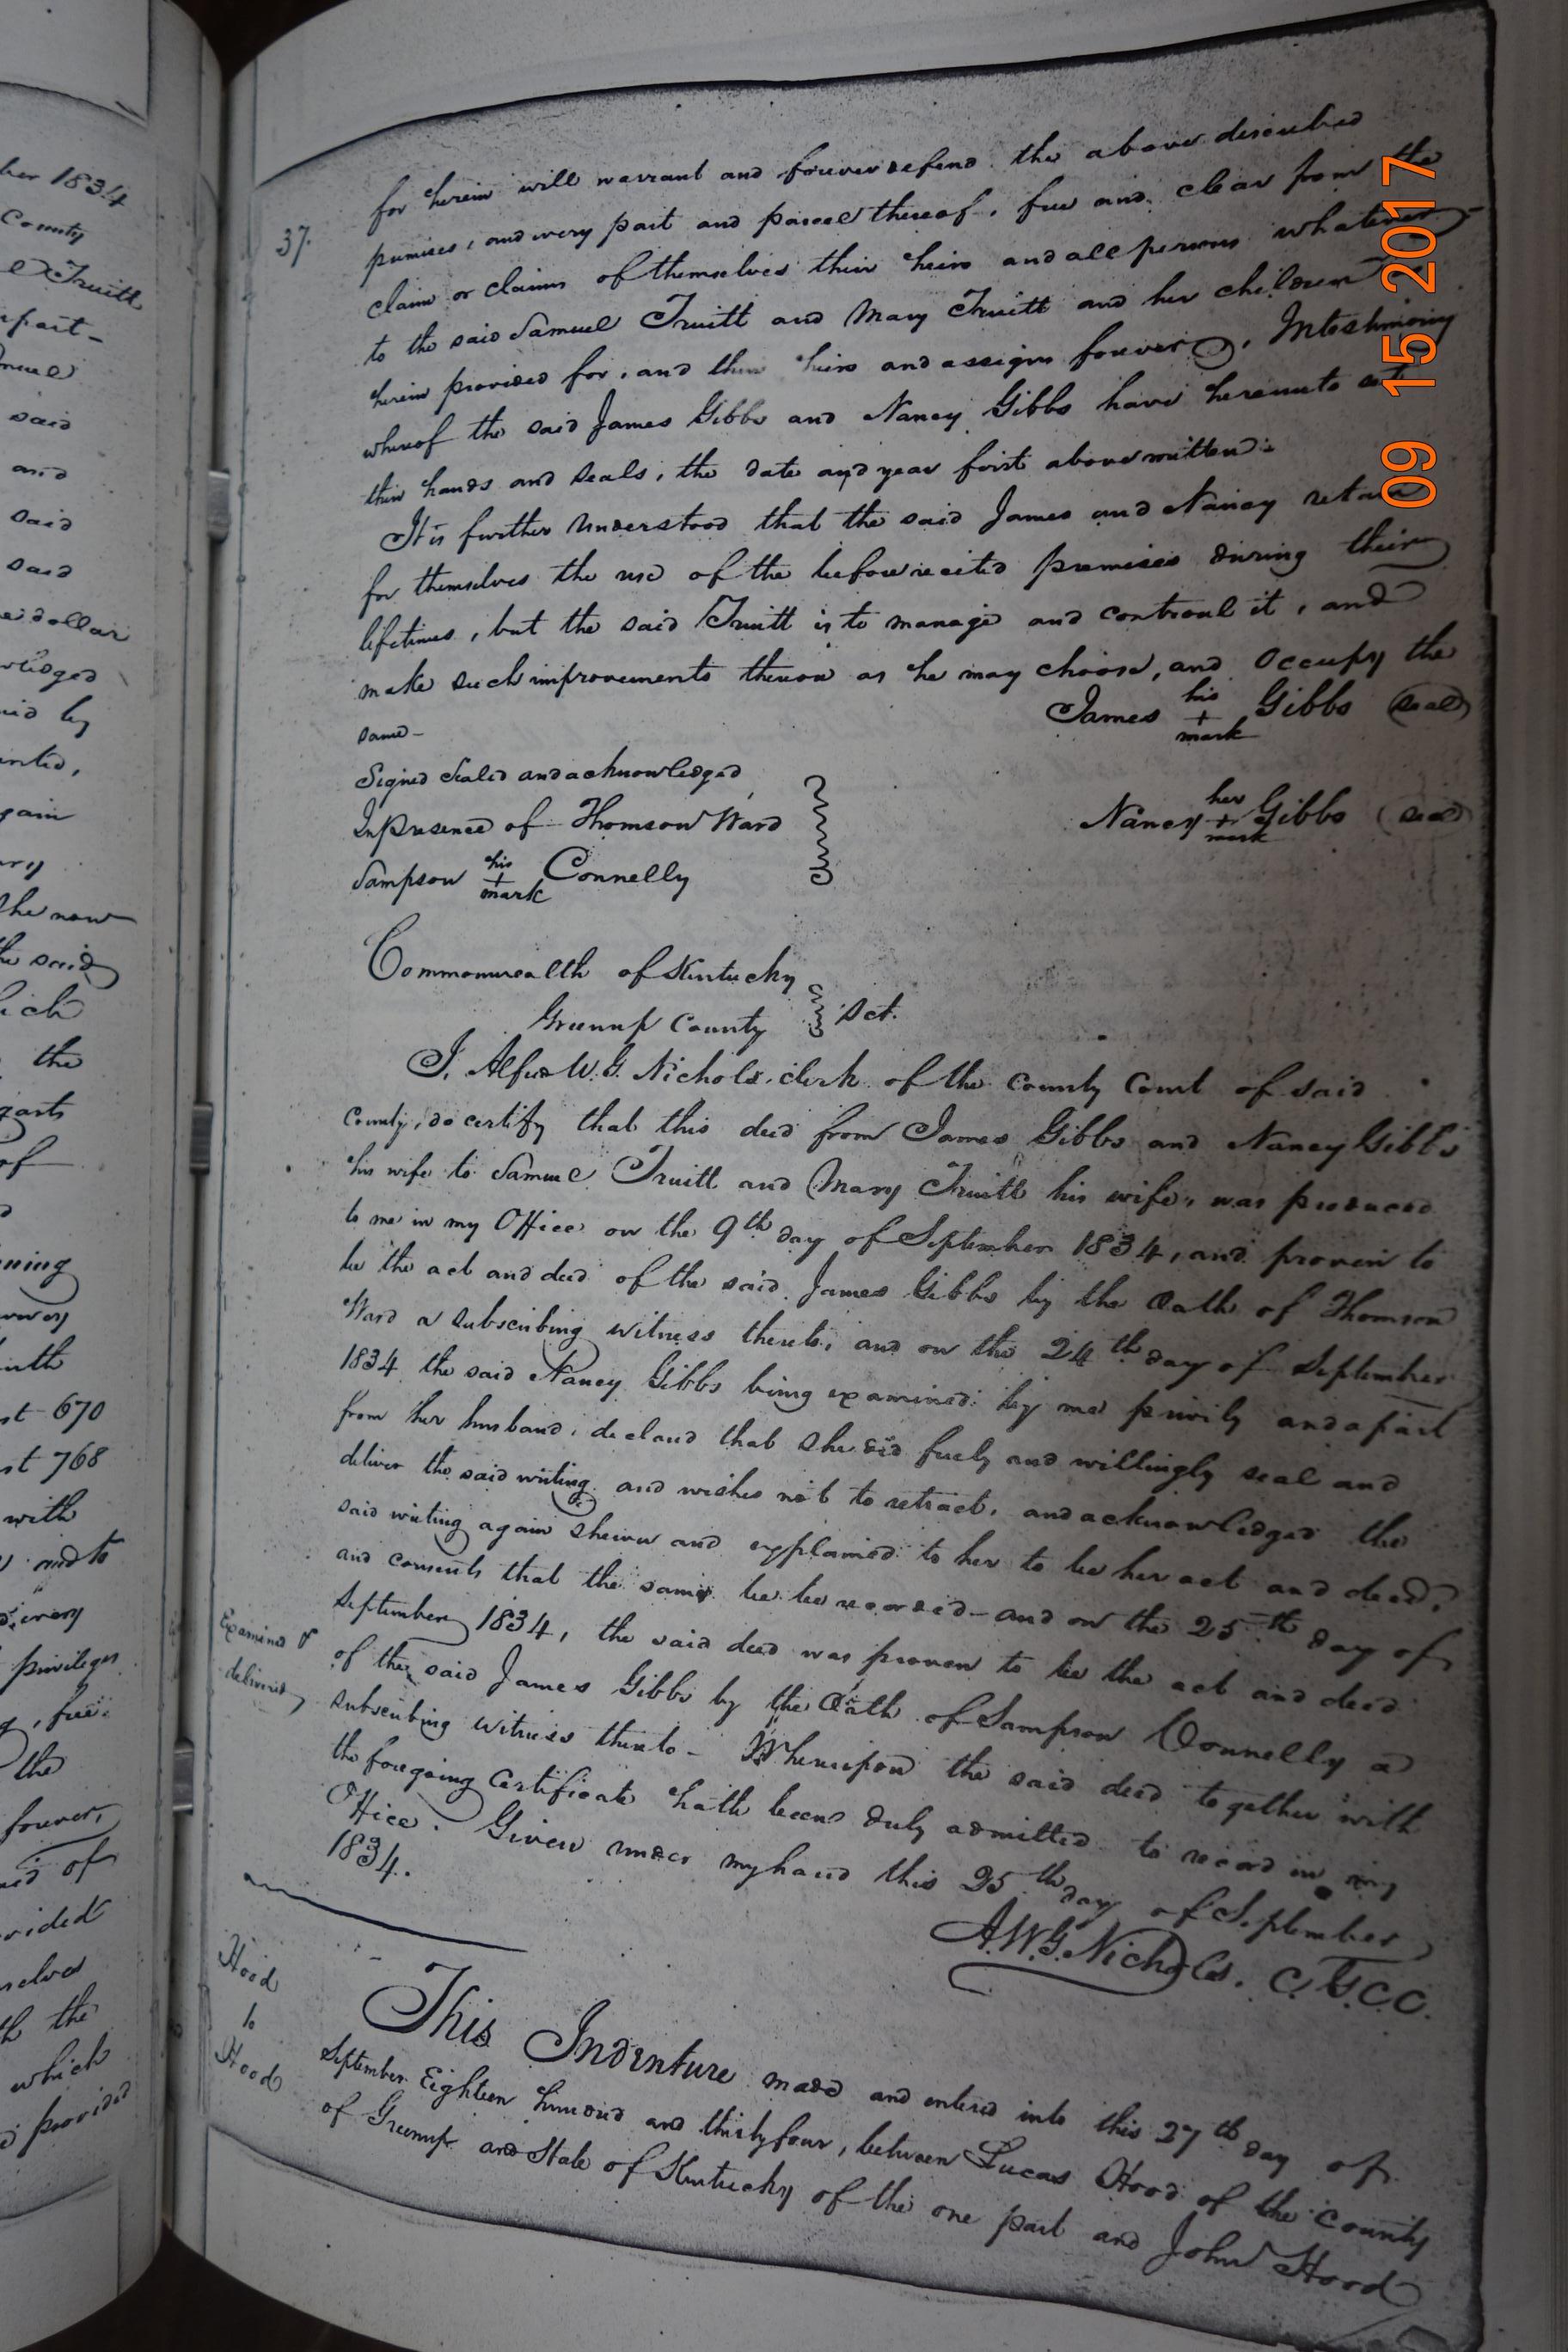 ber 1834
County
Truitt
part-
muel
said
and
said
said
dollar
ledged
by
gain
the now
the said
ich
the
parts
of
ning
670
768
with
and to
every
privileges
, free
the
forever,
of
vided
selves
the
which
provided
09 15 2017
37.
for herein will warrant and forever defend the above described
premises, and every part and parcel thereof, free and clear from the
claim or claims of themselves their heirs and all persons whatever
to the said Samuel Truitt and Mary Truitt and her children
herein provided for, and their heirs and assigns forever. In testimony
whereof the said James Gibbs and Nancy Gibbs have hereunto set
their hands and seals, the date and year first above written.
It is further understood that the said James and Nancy retain
for themselves the use of the before recited premises during their
lifetimes, but the said Truitt is to manage and controul it, and
make such improvements thereon as he may choose, and occupy the
same-
James his + mark Gibbs (seal)
Signed Sealed and acknowledged
In presence of Thomson Ward
Nancy her + mark Gibbs (seal)
Sampson his + mark Connelly
Commonwealth of Kentucky
Greenup County Sct.
I, Alfred W. G. Nichols, clerk of the County Court of said
County, do certify that this deed from James Gibbs and Nancy Gibbs
his wife to Samuel Truitt and Mary Truitt his wife, was produced
to me in my Office on the 9th day of September 1834, and proven to
be the act and deed of the said James Gibbs by the Oath of Thomson
Ward a subscribing witness thereto, and on the 24th day of September
1834 the said Nancy Gibbs being examined by me privily and apart
from her husband, declared that she did freely and willingly seal and
deliver the said writing and wishes not to retract, and acknowledged the
said writing again shewn and explained to her to be her act and deed,
and consents that the same be be recorded - and on the 25th day of
September 1834, the said deed was proven to be the act and deed
of the said James Gibbs by the Oath of Sampson Connelly a
subscribing witness thereto - Whereupon the said deed together with
the foregoing certificate hath been duly admitted to record in my
Office. Given under my hand this 25th day of September
1834.
A. W. G. Nichols. C. G. C. C.
Examined &
delivered
Hood
to
Hood
This Indenture made and entered into this 27th day of
September Eighteen hundred and thirty four, between Lucas Hood of the County
of Greenup and State of Kentucky of the one part and John Hood